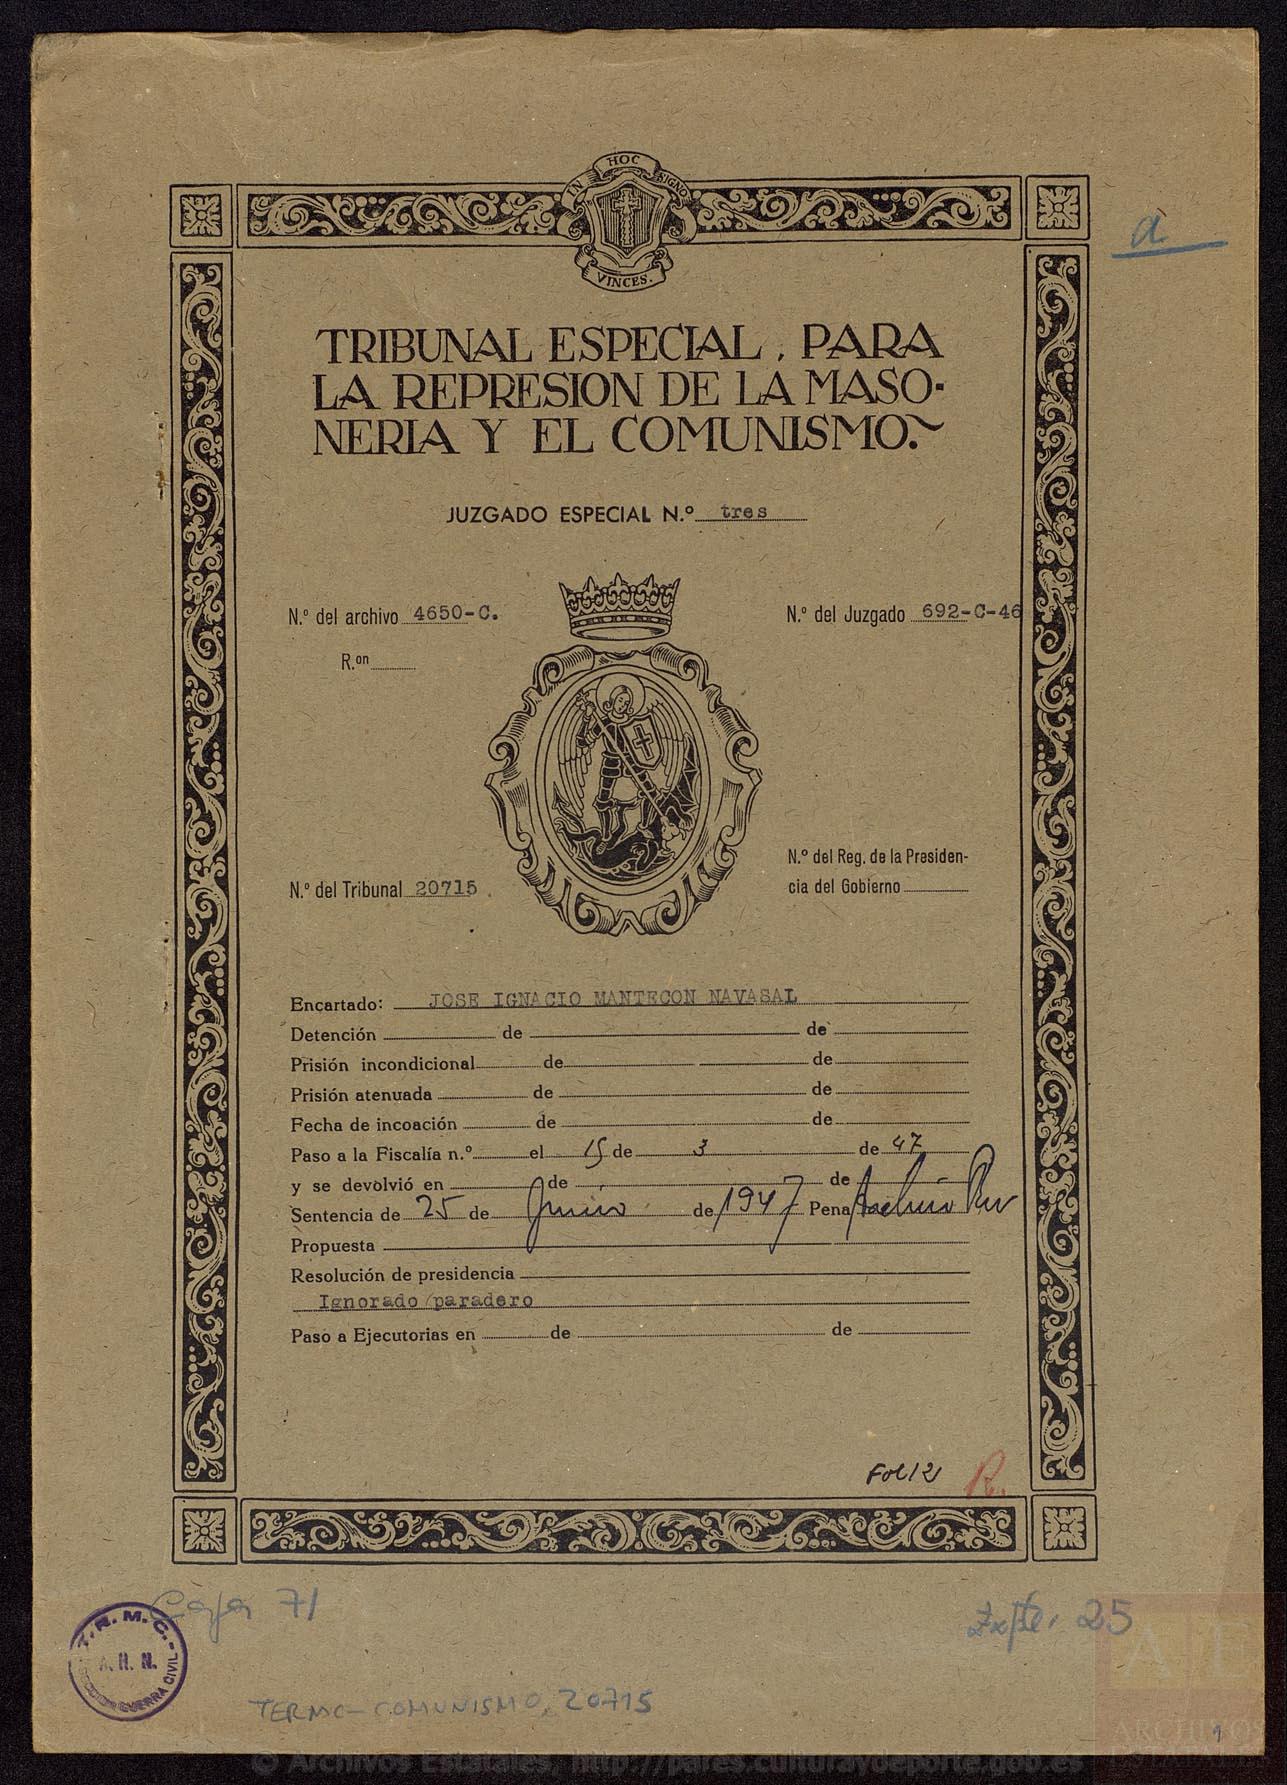 IN HOC SIGNO
VINCES.
a
TRIBUNAL ESPECIAL, PARA
LA REPRESION DE LA MASO-
NERIA Y EL COMUNISMO.
JUZGADO ESPECIAL N.º tres
N.º del archivo 4650-C. N.º del Juzgado 692-C-46
R.on
N.º del Reg. de la Presiden-
N.º del Tribunal 20715 cia del Gobierno
Encartado: JOSE IGNACIO MANTECON NAVASAL
Detención de de
Prisión incondicional de de
Prisión atenuada de de
Fecha de incoación de de
Paso a la Fiscalía n.º el 15 de 3 de 47
y se devolvió en de de
Sentencia de 25 de Junio de 1947 Pena
Propuesta
Resolución de presidencia
Ignorado paradero
Paso a Ejecutorias en de de
R.
Caja 71
Expte. 25
T.R.M.C.-
A. H. N.
GUERRA CIVIL
TERMC-COMUNISMO, 20715
AE
ARCHIVOS
ESTATALES
1
© Archivos Estatales, http://pares.culturaydeporte.gob.es